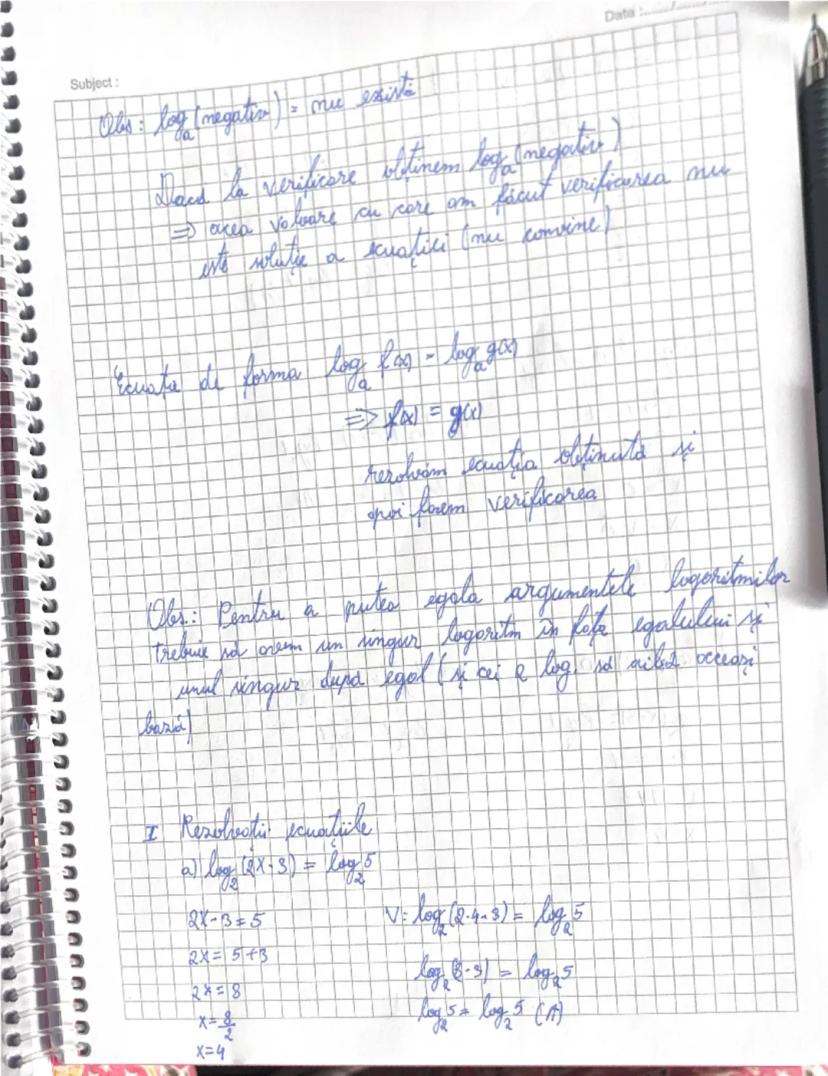 Date :
Subject :
Obs: log_a(negativ) = nu există
Dacă la verificare obținem log_a(negativ)
=> acea valoare cu care am făcut verificarea nu
este soluție a ecuației (nu convine)
Ecuația de forma log_a f(x) = log_a g(x)
=> f(x) = g(x)
rezolvăm ecuația obținută și
apoi facem verificarea
Obs.: Pentru a putea egala argumentele logaritmilor
trebuie să avem un singur logaritm în fața egalului și
unul singur după egal (și cei 2 log. să aibă aceeași
bază)
I Rezolvați ecuațiile
a) log_2(2x-3) = log_2 5
2x-3=5
V: log_2(2·4-3) = log_2 5
2x = 5+3
log_2(8-3) = log_2 5
2x=8
log_2 5 = log_2 5 (A)
x=8/2
x=4